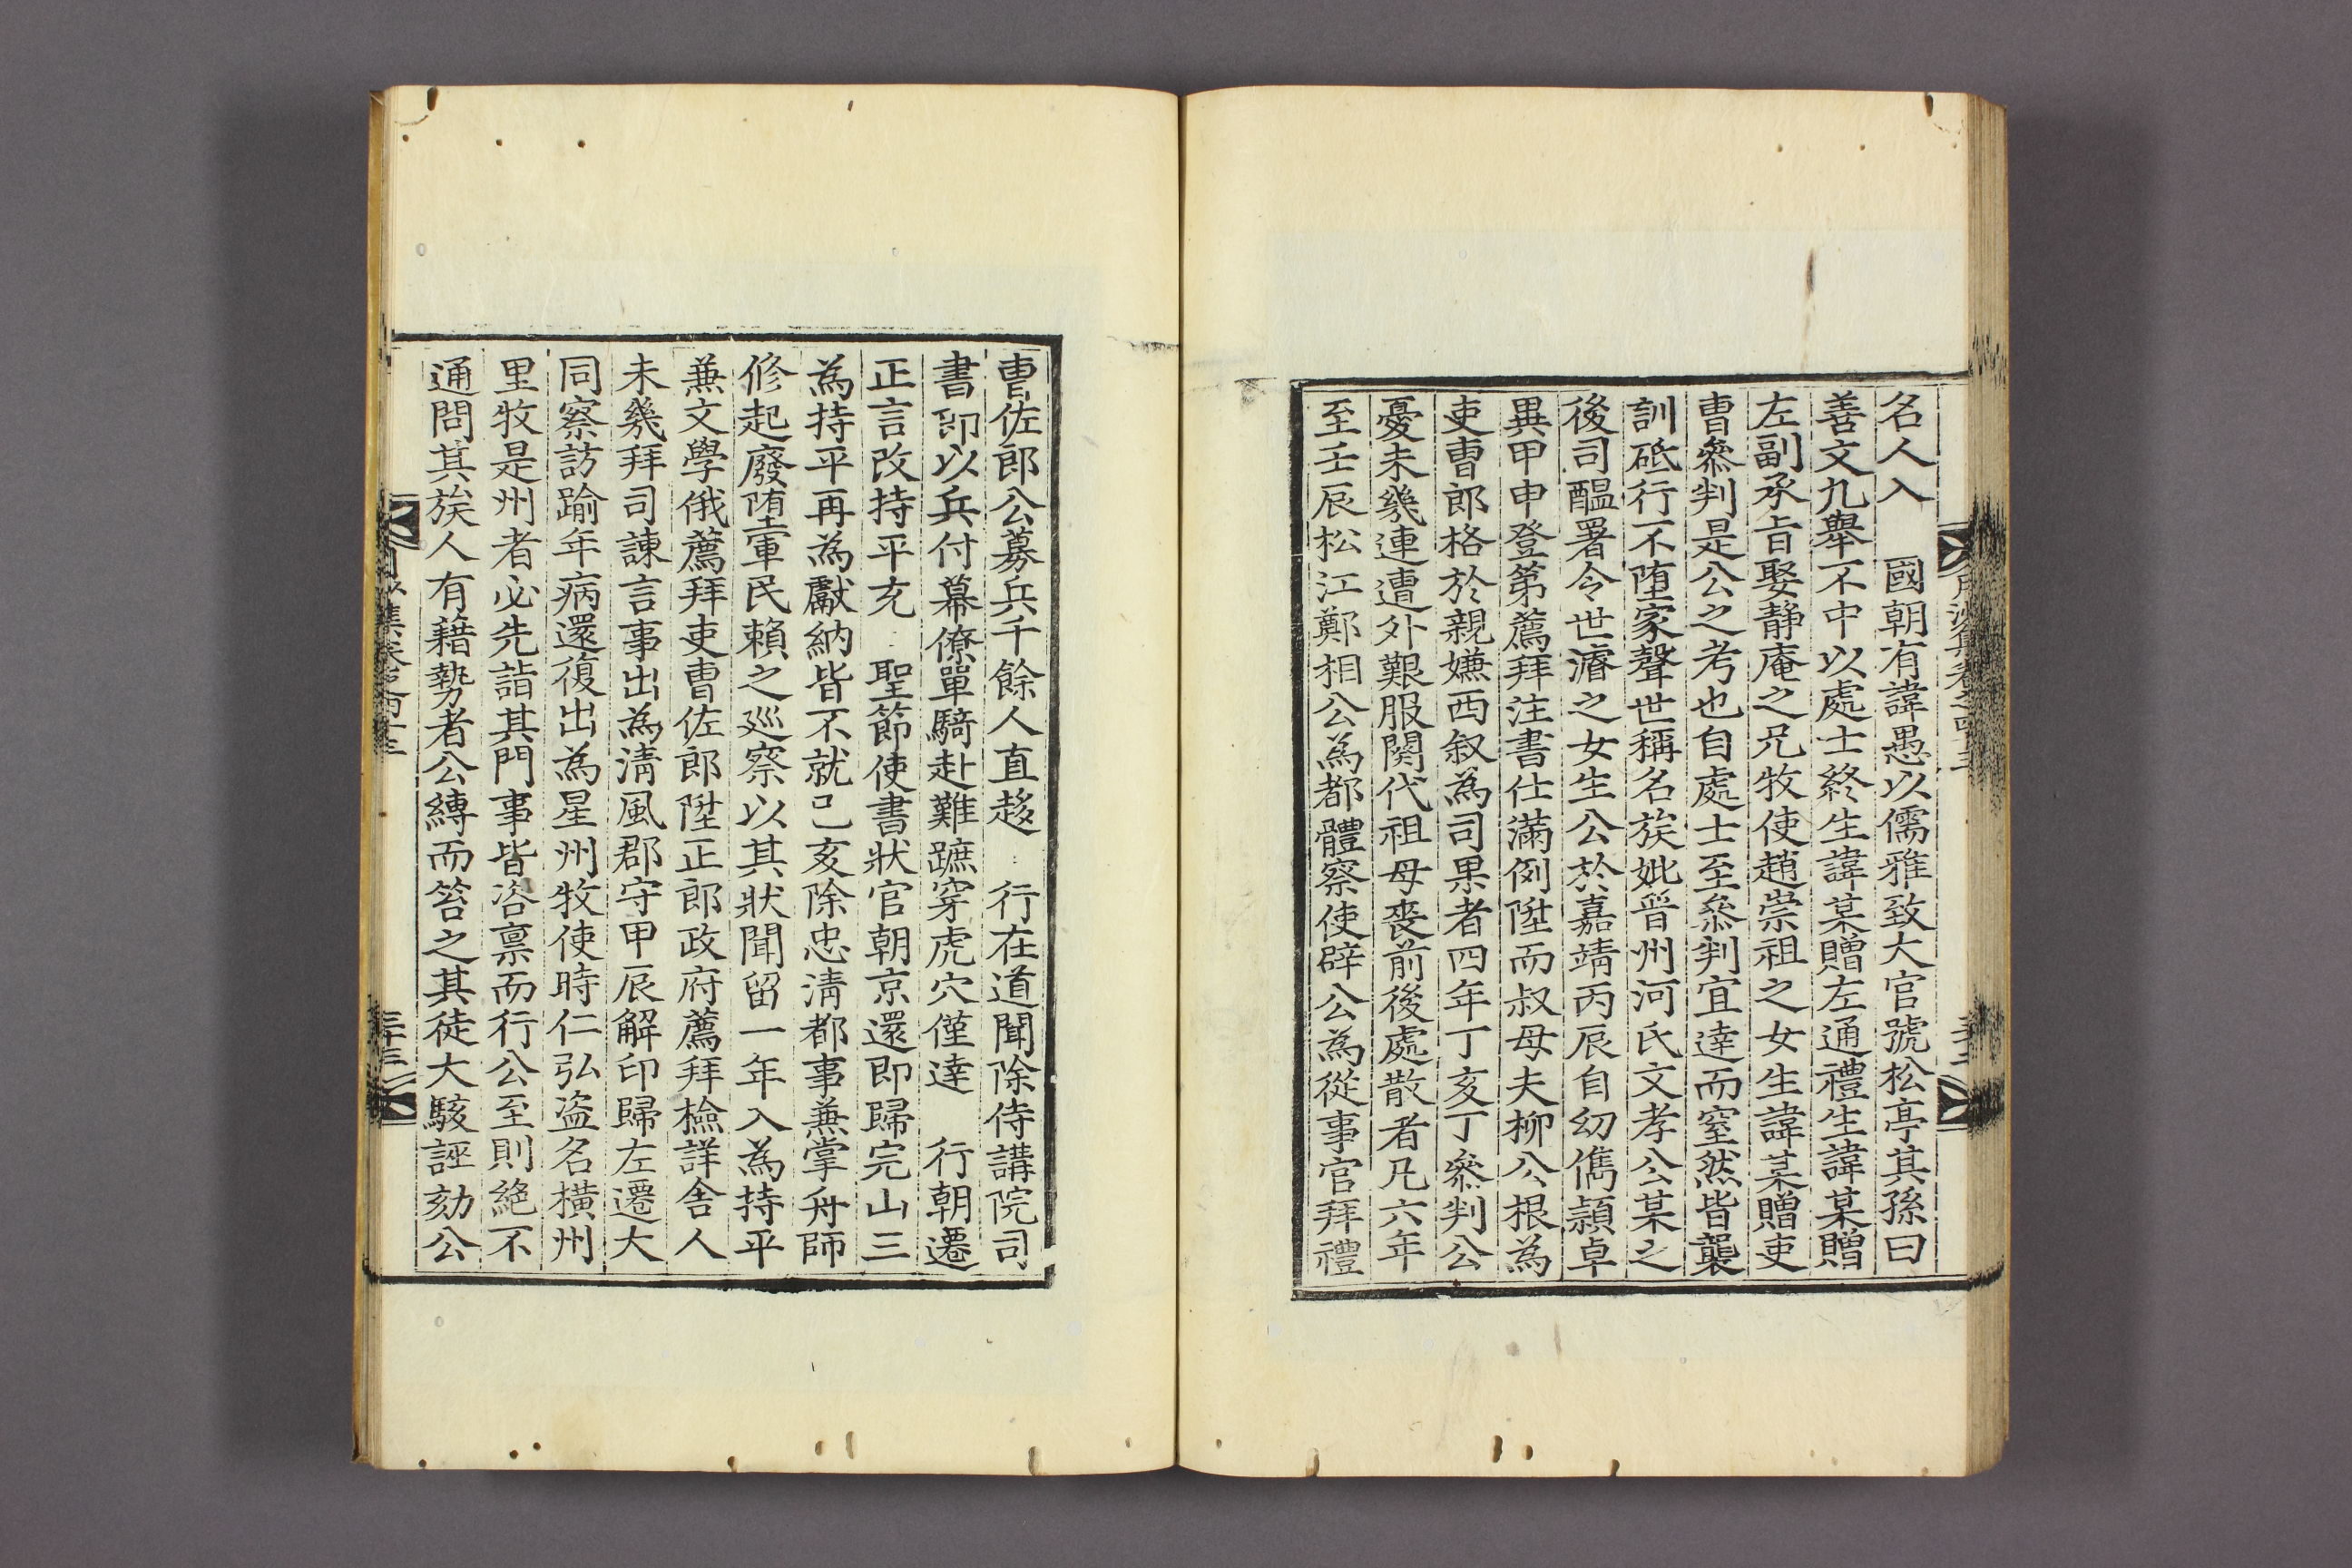 名人入 國朝有諱愚以儒雅致大官號松亭其孫曰
善文九舉不中以處士終生諱某贈左通禮生諱某贈
左副承旨娶静庵之兄牧使趙崇祖之女生諱某贈吏
曹叅判是公之考也自處士至叅判宜達而窒然皆襲
訓砥行不堕家聲世稱名族妣晋州河氏文孝公某之
後司醞署令世濬之女生公於嘉靖丙辰自幼儁頴卓
異甲申登第薦拜注書仕滿例陞而叔母夫柳公根為
吏曹郎格於親嫌西叙為司果者四年丁亥丁叅判公
憂未幾連遭外艱服闋代祖母喪前後處散者凡六年
至壬辰松江鄭相公為都體察使辟公為從事官拜禮
曹佐郎公募兵千餘人直趍 行在道聞除侍講院司
書卽以兵付幕僚單騎赴難蹠穿虎穴僅達 行朝遷
正言改持平充 聖節使書狀官朝京還即歸完山三
為持平再為獻納皆不就己亥除忠淸都事兼掌舟師
修起廢堕軍民賴之廵察以其狀聞留一年入為持平
兼文學俄薦拜吏曹佐郎陞正郎政府薦拜檢詳舍人
未幾拜司諫言事出為淸風郡守甲辰解印歸左遷大
同察訪踰年病還復出為星州牧使時仁弘盗名橫州
里牧是州者必先詣其門事皆咨禀而行公至則絶不
通問其族人有藉勢者公縛而笞之其徒大駭誣劾公